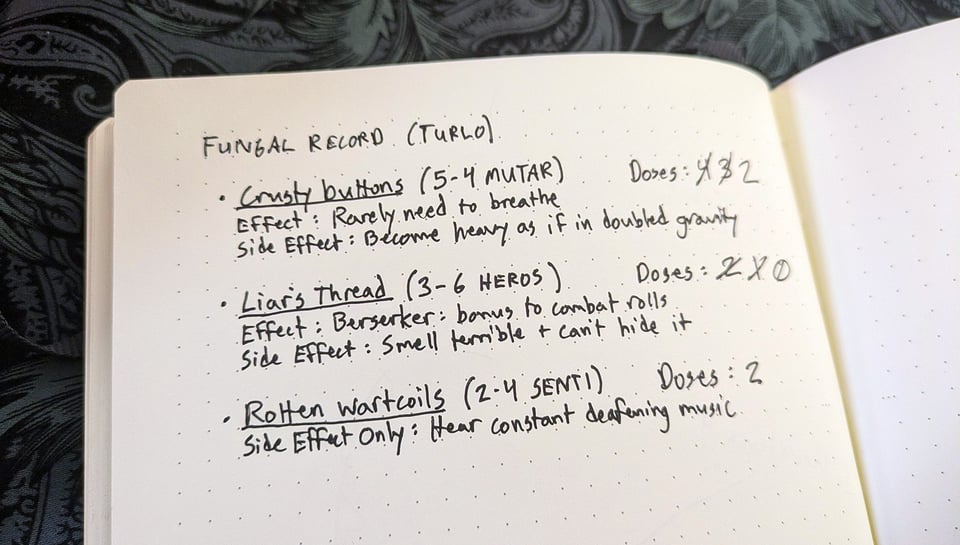 FUNGAL RECORD (TURLO)
• Crusty buttons (5-4 MUTAR) Doses: 4 3 2
Effect: Rarely need to breathe
Side Effect: Become heavy as if in doubled gravity
• Liar's Thread (3-6 HEROS) Doses: 2 1 0
Effect: Berserker: bonus to combat rolls
Side Effect: Smell terrible + can't hide it
• Rotten Wartcoils (2-4 SENTI) Doses: 2
Side Effect Only: Hear constant deafening music